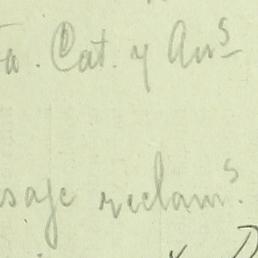 ta. Cat. y Aus
saje reclams.